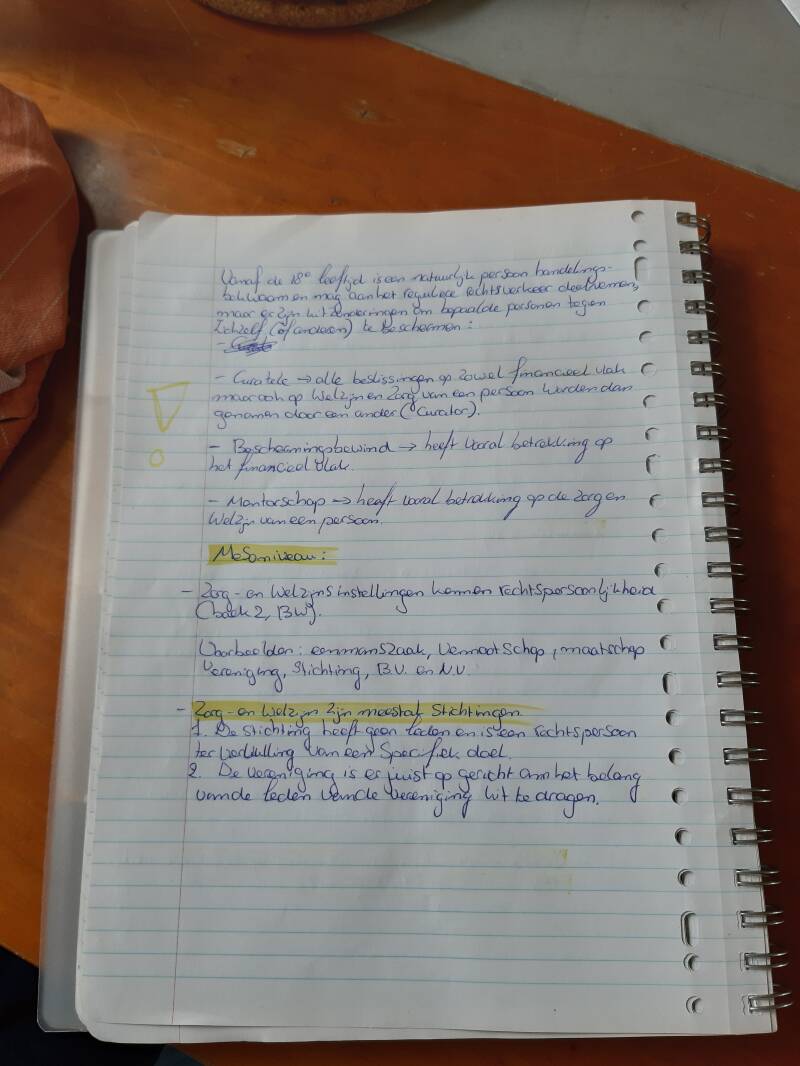 Vanaf de 18e leeftijd is een natuurlijk persoon handelings-
bekwaam en mag aan het reguliere rechtsverkeer deelnemen,
maar er zijn uitzonderingen om bepaalde personen tegen
zichzelf (of anderen) te beschermen:
-
- Curatele → alle beslissingen op zowel financieel vlak
maar ook op welzijn en zorg van een persoon worden dan
genomen door een ander (Curator).
- Beschermingsbewind → heeft vooral betrekking op
het financieel vlak.
- Mentorschap → heeft vooral betrekking op de zorg en
welzijn van een persoon.
Mesoniveau:
- Zorg- en welzijnsinstellingen kennen rechtspersoonlijkheid
(boek 2, BW).
Voorbeelden: eenmanszaak, vennootschap, maatschap
vereniging, stichting, B.V. en N.V.
- Zorg- en welzijn zijn meestal stichtingen.
1. De stichting heeft geen leden en is een rechtspersoon
ter vervulling van een specifiek doel.
2. De vereniging is er juist op gericht om het belang
van de leden van de vereniging uit te dragen.